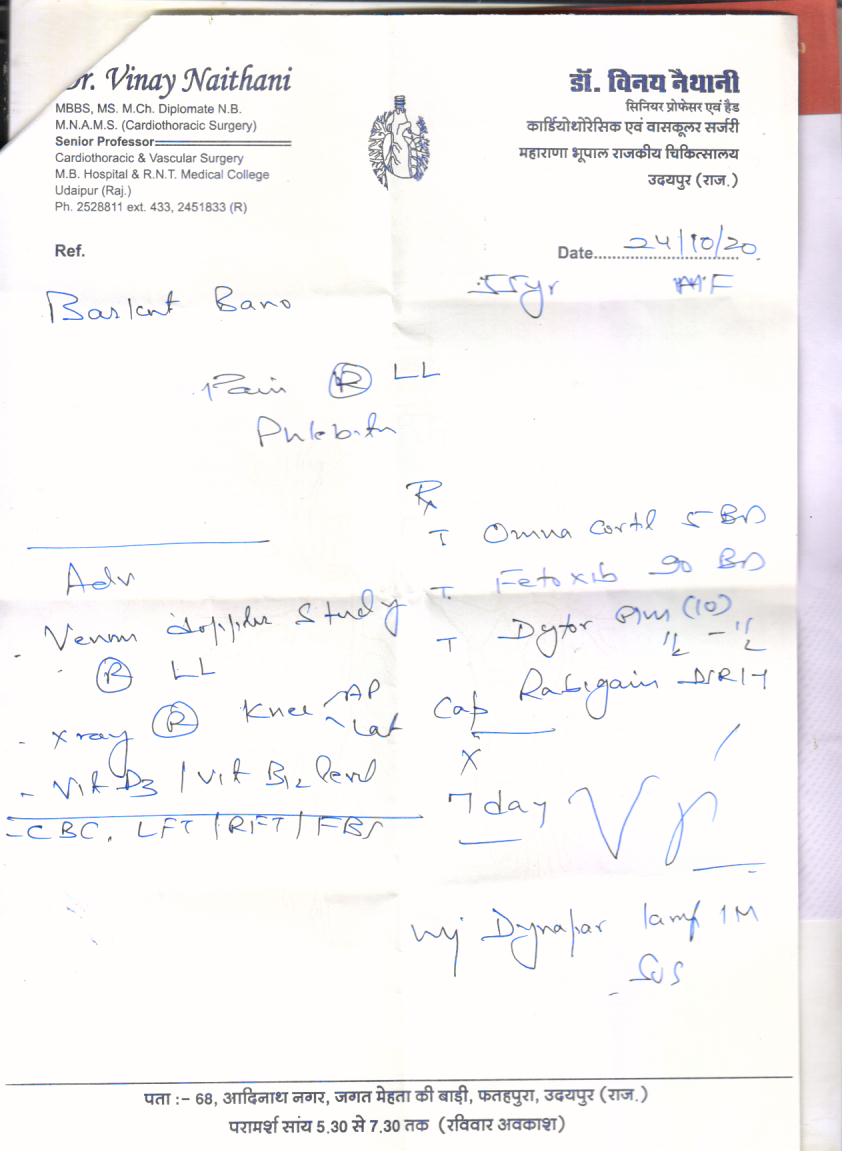 Dr. Vinay Naithani
MBBS, MS. M.Ch. Diplomate N.B.
M.N.A.M.S. (Cardiothoracic Surgery)
Senior Professor
Cardiothoracic & Vascular Surgery
M.B. Hospital & R.N.T. Medical College
Udaipur (Raj.)
Ph. 2528811 ext. 433, 2451833 (R)
डॉ. विनय नैथानी
सिनियर प्रोफेसर एवं हैड
कार्डियोथोरेसिक एवं वासकूलर सर्जरी
महाराणा भूपाल राजकीय चिकित्सालय
उदयपुर (राज.)
Ref.
Date 24/10/20
55yr F
Bano
Pain Ⓡ LL
Adv
Venous Doppler Study
Ⓡ LL
- X ray Ⓡ Knee AP
Lat
- Vit D3 / Vit B12 level
- CBC, LFT / RFT / FBS
Rx
T Omna cortil 5 BD
T Fetoxib 90 BD
T Dytor Plus (10)
1/2 - 1/2
Cap Rabigain DSR 1-1
X
7 day
Inj Dynapar 1amp IM
SOS
पता :– 68, आदिनाथ नगर, जगत मेहता की बाड़ी, फतहपुरा, उदयपुर (राज.)
परामर्श सांय 5.30 से 7.30 तक (रविवार अवकाश)